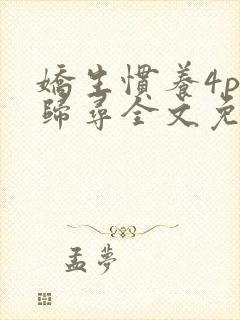 嬌生慣養4p
歸尋全文免
孟夢